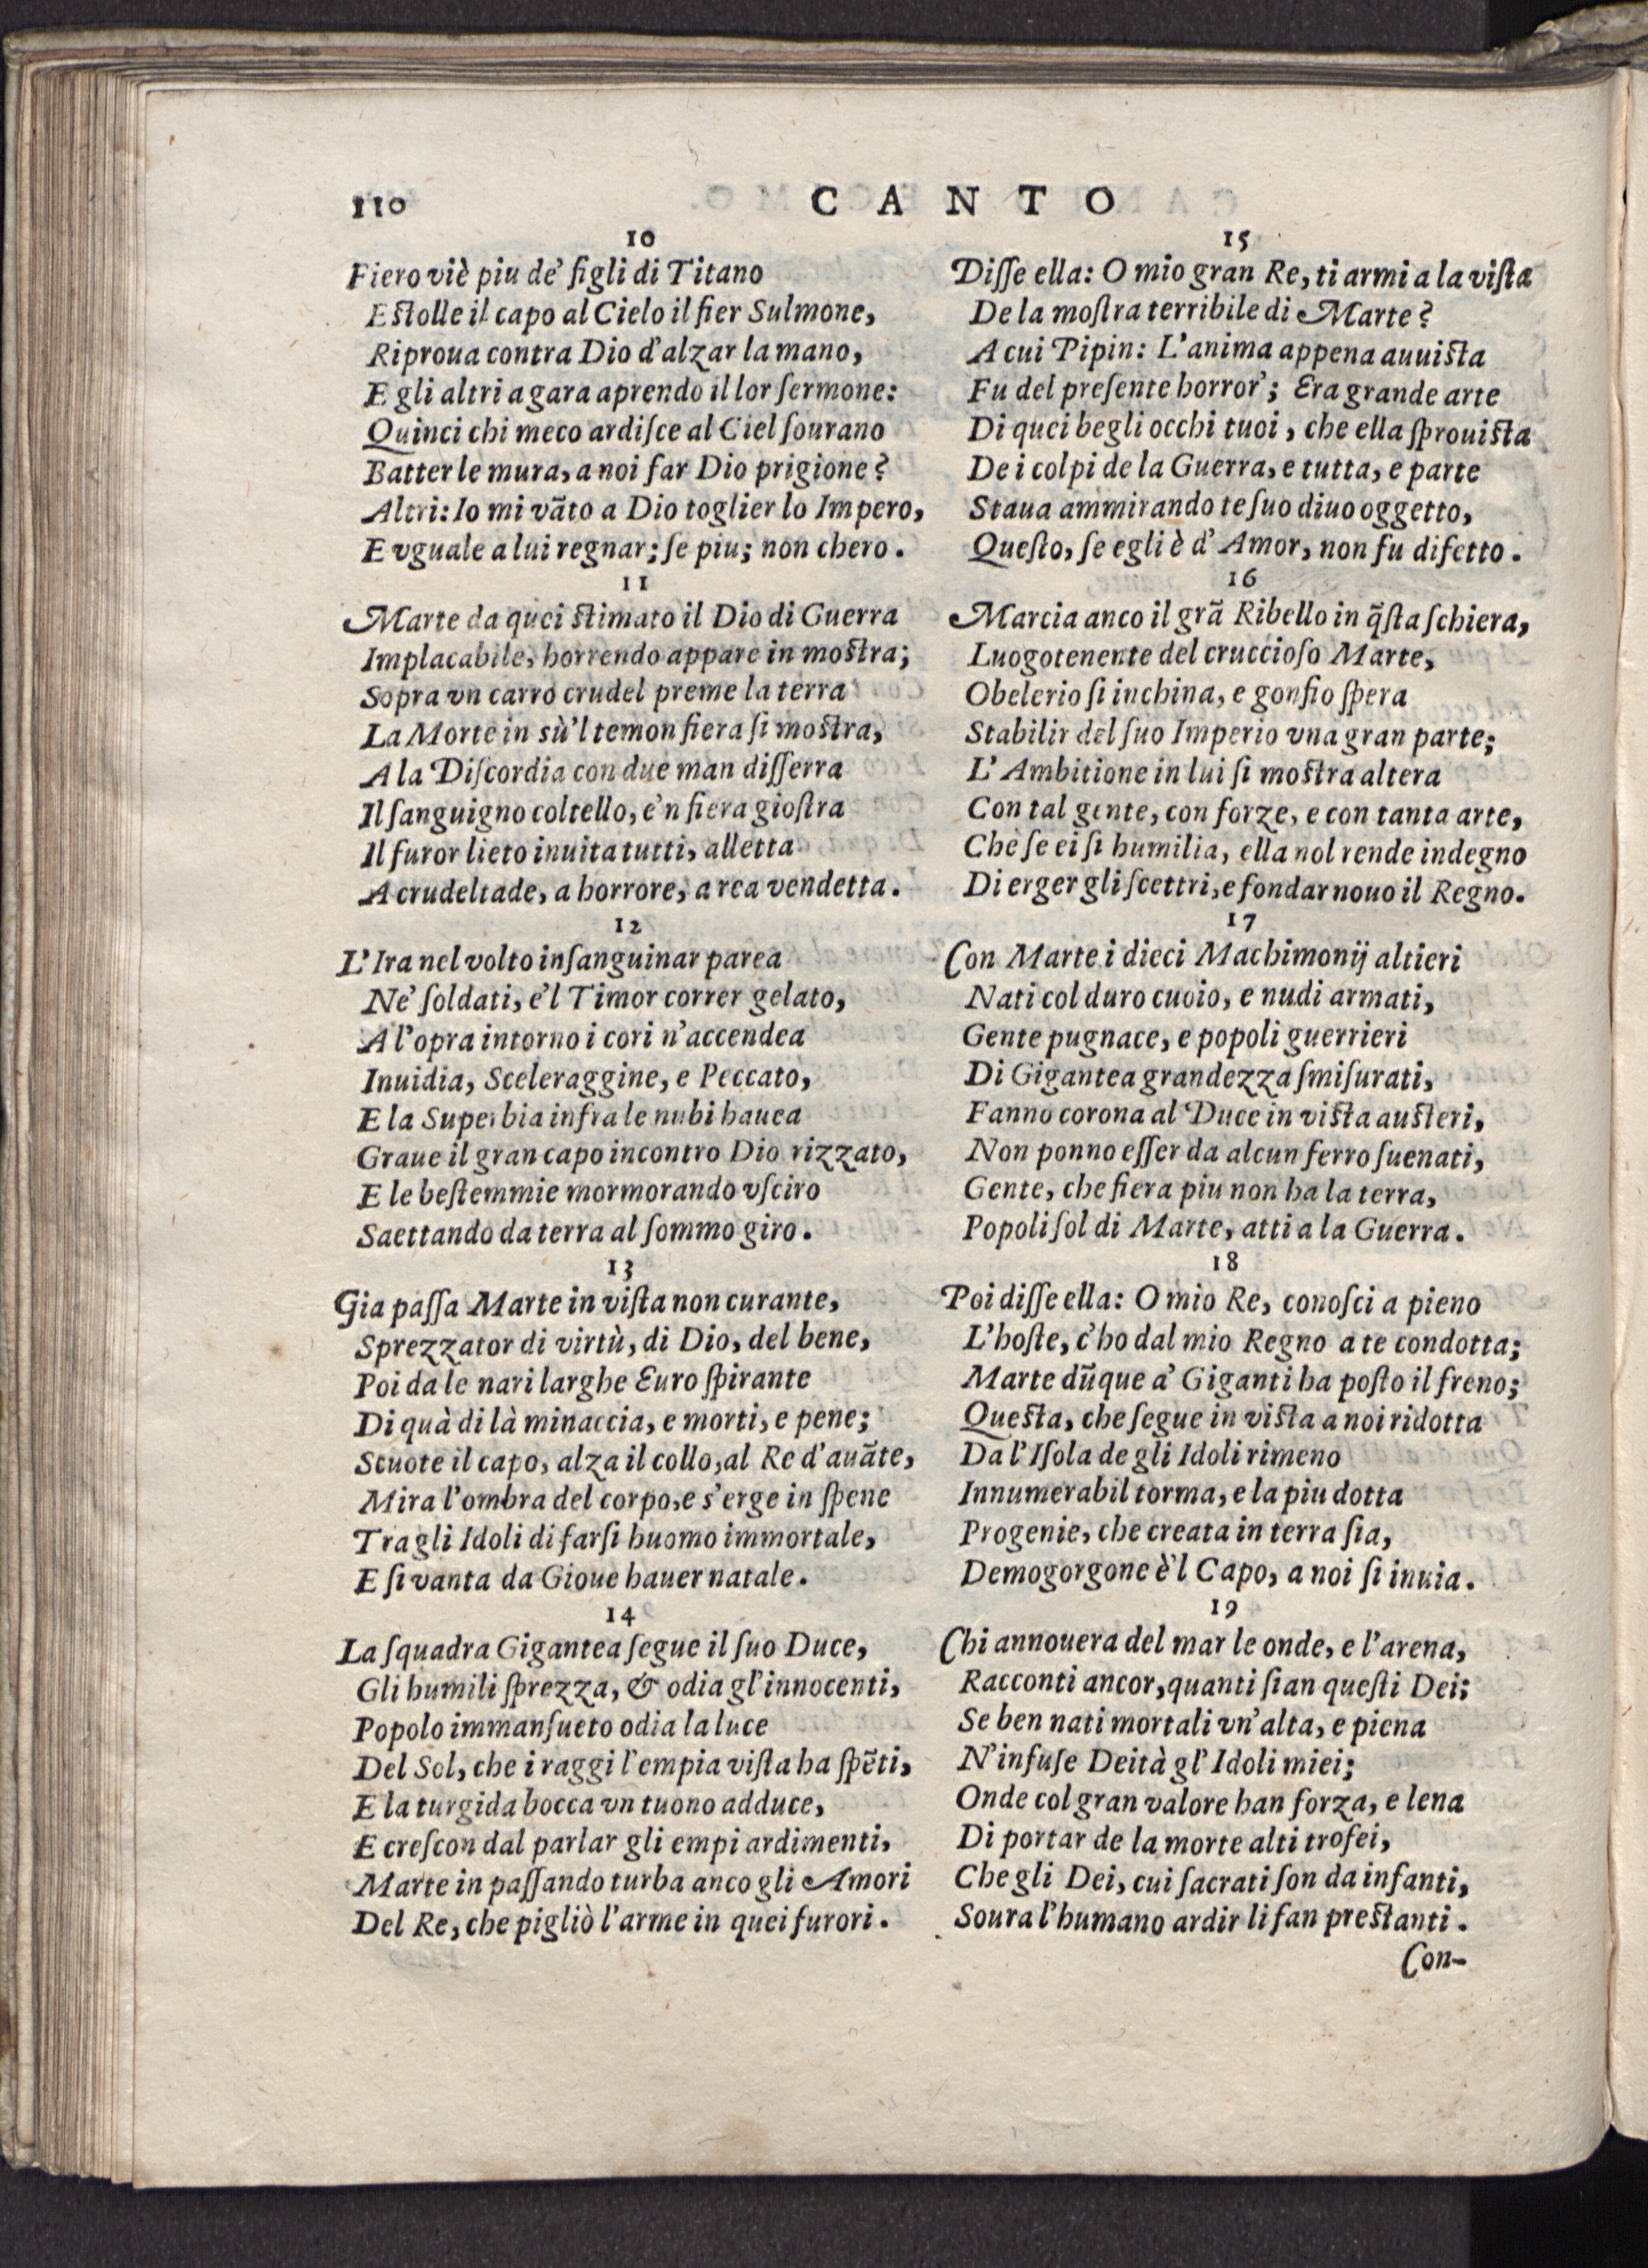 110
CANTO
10
Fiero viè piu de' figli di Titano
Estolle il capo al Cielo il fier Sulmone,
Riproua contra Dio d'alzar la mano,
E gli altri a gara aprendo il lor ſermone:
Quinci chi meco ardiſce al Ciel ſourano
Batter le mura, a noi far Dio prigione?
Altri: Io mi vãto a Dio toglier lo Impero,
E vguale a lui regnar; ſe piu; non chero.
11
Marte da quei stimato il Dio di Guerra
Implacabile, horrendo appare in mostra;
Sopra vn carro crudel preme la terra
La Morte in sù'l temon fiera ſi mostra,
A la Diſcordia con due man diſſerra
Il ſanguigno coltello, e'n fiera gioſtra
Il furor lieto inuita tutti, alletta
A crudeltade, a horrore, a rea vendetta.
12
L'Ira nel volto inſanguinar parea
Ne' ſoldati, e'l Timor correr gelato,
A l'opra intorno i cori n'accendea
Inuidia, Sceleraggine, e Peccato,
E la Superbia infra le nubi hauea
Graue il gran capo incontro Dio rizzato,
E le beſtemmie mormorando vſciro
Saettando da terra al ſommo giro.
13
Gia paſſa Marte in viſta non curante,
Sprezzator di virtù, di Dio, del bene,
Poi da le nari larghe Euro ſpirante
Di quà di là minaccia, e morti, e pene;
Scuote il capo, alza il collo, al Re d'auãte,
Mira l'ombra del corpo, e s'erge in ſpene
Tra gli Idoli di farſi huomo immortale,
E ſi vanta da Gioue hauer natale.
14
La ſquadra Gigantea ſegue il ſuo Duce,
Gli humili ſprezza, & odia gl'innocenti,
Popolo immanſueto odia la luce
Del Sol, che i raggi l'empia viſta ha ſpẽti,
E la turgida bocca vn tuono adduce,
E creſcon dal parlar gli empi ardimenti,
Marte in paſſando turba anco gli Amori
Del Re, che pigliò l'arme in quei furori.
15
Diſſe ella: O mio gran Re, ti armi a la viſta
De la moſtra terribile di Marte?
A cui Pipin: L'anima appena auuista
Fu del preſente horror'; Era grande arte
Di quei begli occhi tuoi, che ella ſprouista
De i colpi de la Guerra, e tutta, e parte
Staua ammirando te ſuo diuo oggetto,
Queſto, ſe egli è d'Amor, non fu difetto.
16
Marcia anco il grã Ribello in q̃ſta ſchiera,
Luogotenente del cruccioſo Marte,
Obelerio ſi inchina, e gonfio ſpera
Stabilir del ſuo Imperio vna gran parte;
L'Ambitione in lui ſi mostra altera
Con tal gente, con forze, e con tanta arte,
Che ſe ei ſi humilia, ella nol rende indegno
Di erger gli ſcettri, e fondar nouo il Regno.
17
Con Marte i dieci Machimonij altieri
Nati col duro cuoio, e nudi armati,
Gente pugnace, e popoli guerrieri
Di Gigantea grandezza ſmiſurati,
Fanno corona al Duce in vista austeri,
Non ponno eſſer da alcun ferro ſuenati,
Gente, che fiera piu non ha la terra,
Popoli ſol di Marte, atti a la Guerra.
18
Poi diſſe ella: O mio Re, conoſci a pieno
L'hoſte, c'ho dal mio Regno a te condotta;
Marte dũque a' Giganti ha poſto il freno;
Questa, che ſegue in vista a noi ridotta
Da l'Iſola de gli Idoli rimeno
Innumerabil torma, e la piu dotta
Progenie, che creata in terra ſia,
Demogorgone è'l Capo, a noi ſi inuia.
19
Chi annouera del mar le onde, e l'arena,
Racconti ancor, quanti ſian queſti Dei;
Se ben nati mortali vn'alta, e piena
N'infuſe Deità gl'Idoli miei;
Onde col gran valore han forza, e lena
Di portar de la morte alti trofei,
Che gli Dei, cui ſacrati ſon da infanti,
Soura l'humano ardir li fan prestanti.
Con-